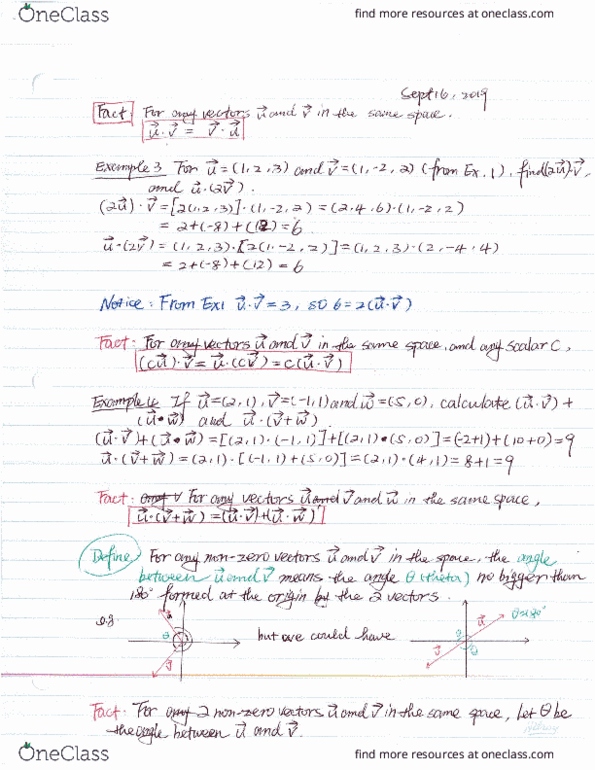 OneClass
find more resources at oneclass.com
Sept 16, 2019
Fact: For any vectors u⃗ and v⃗ in the same space.
u⃗·v⃗ = v⃗·u⃗
Example 3 For u⃗=(1,2,3) and v⃗=(1,-2,2) (from Ex. 1), find (2u⃗)·v⃗,
and u⃗·(2v⃗).
(2u⃗)·v⃗=[2(1,2,3)]·(1,-2,2)=(2,4,6)·(1,-2,2)
= 2+(-8)+(12)=6
u⃗·(2v⃗)=(1,2,3)·[2(1,-2,2)]=(1,2,3)·(2,-4,4)
= 2+(-8)+(12)=6
Notice: From Ex1 u⃗·v⃗=3, so 6=2(u⃗·v⃗)
Fact: For any vectors u⃗ and v⃗ in the same space, and any scalar c,
(cu⃗)·v⃗=u⃗·(cv⃗)=c(u⃗·v⃗)
Example 4 If u⃗=(2,1), v⃗=(-1,1) and w⃗=(5,0), calculate (u⃗·v⃗)+
(u⃗·w⃗) and u⃗·(v⃗+w⃗).
(u⃗·v⃗)+(u⃗·w⃗)=[(2,1)·(-1,1)]+[(2,1)·(5,0)]=(-2+1)+(10+0)=9
u⃗·(v⃗+w⃗)=(2,1)·[(-1,1)+(5,0)]=(2,1)·(4,1)=8+1=9
Fact: For any vectors u⃗ and v⃗ and w⃗ in the same space,
u⃗·(v⃗+w⃗)=(u⃗·v⃗)+(u⃗·w⃗)
Define: For any non-zero vectors u⃗ and v⃗ in the space, the angle
between u⃗ and v⃗ means the angle θ (theta) no bigger than
180° formed at the origin by the 2 vectors.
e.g. θ v⃗ but we could have u⃗ v⃗ θ θ=180°
Fact: For any 2 non-zero vectors u⃗ and v⃗ in the same space, Let θ be
the angle between u⃗ and v⃗.
OneClass
find more resources at oneclass.com